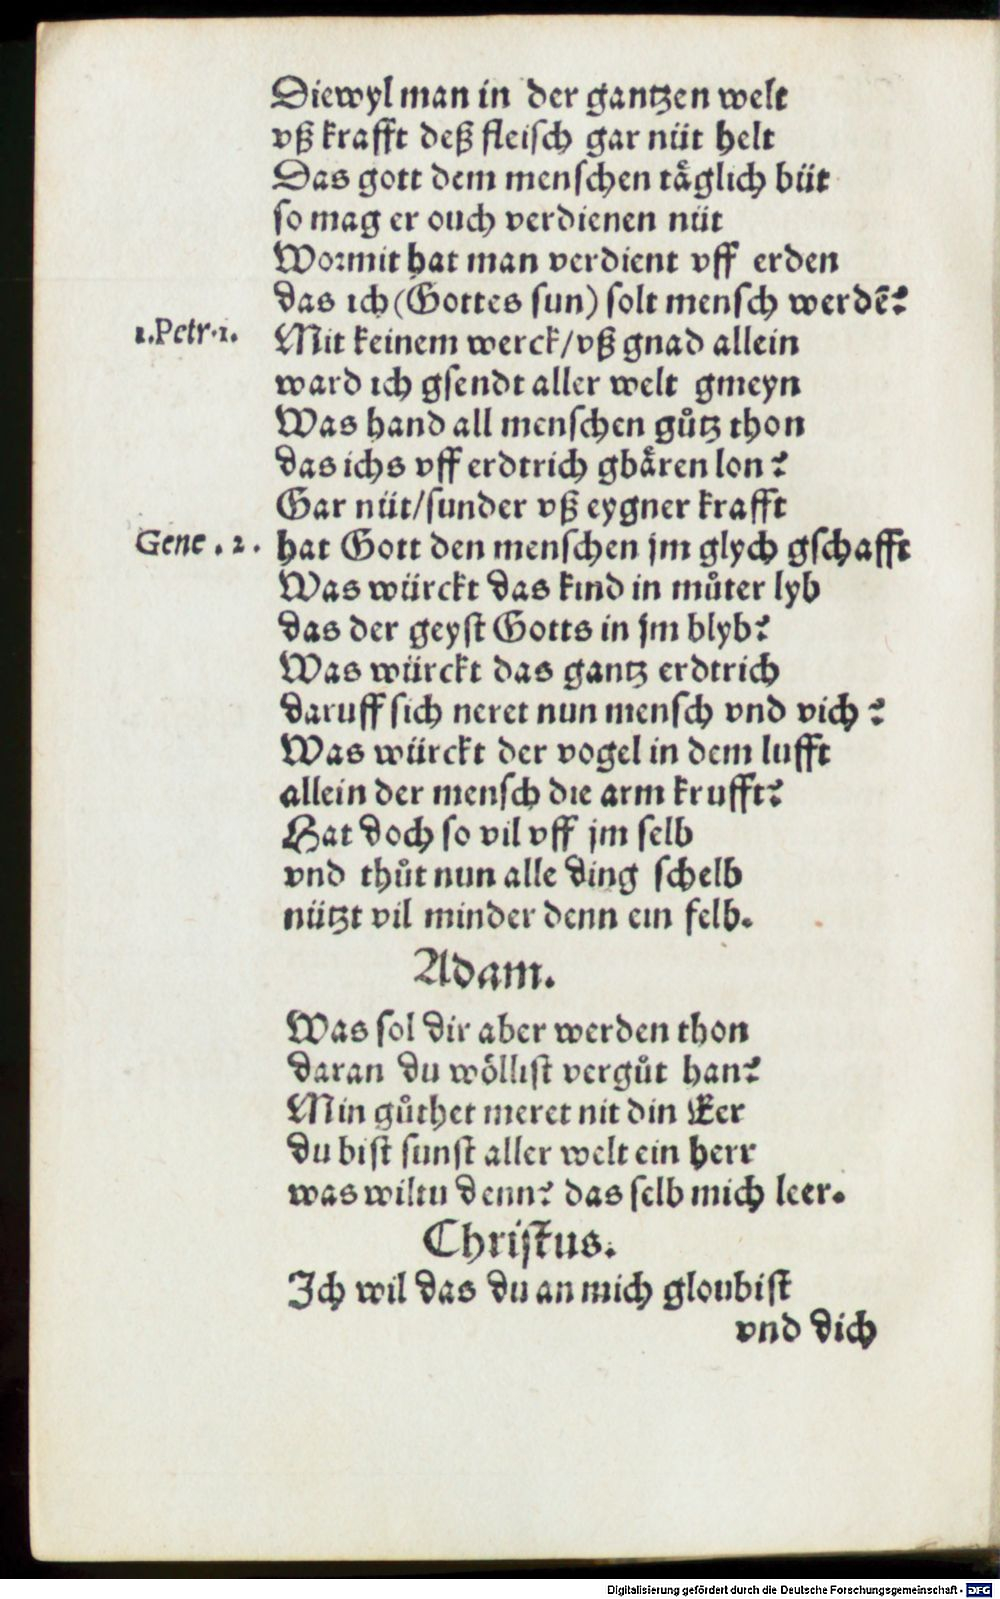 Diewyl man in der gantzen welt
vß krafft deß fleisch gar nüt helt
Das gott dem menschen tåͤglich büt
so mag er ouch verdienen nüt
Wormit hat man verdient vff erden
das ich (Gottes sun) solt mensch werdē?
1.Petr.1.
Mit keinem werck/vß gnad allein
ward ich gsendt aller welt gmeyn
Was hand all menschen gůtz thon
das ichs vff erdtrich gbaͤren lon?
Gar nüt/sunder vß eygner krafft
Gene.2.
hat Gott den menschen jm glych gschafft
Was würckt das kind in můter lyb
das der geyst Gotts in jm blyb?
Was würckt das gantz erdtrich
daruff sich neret nun mensch vnd vich?
Was würckt der vogel in dem lufft
allein der mensch die arm krufft?
Hat doch so vil vff jm selb
vnd thůt nun alle ding schelb
nützt vil minder denn ein felb.
Adam.
Was sol dir aber werden thon
daran du woͤllist vergůt han?
Min gůthet meret nit din Eer
du bist sunst aller welt ein herr
was wiltu denn? das selb mich leer.
Christus.
Ich wil das du an mich gloubist
vnd dich
Digitalisierung gefördert durch die Deutsche Forschungsgemeinschaft - DFG